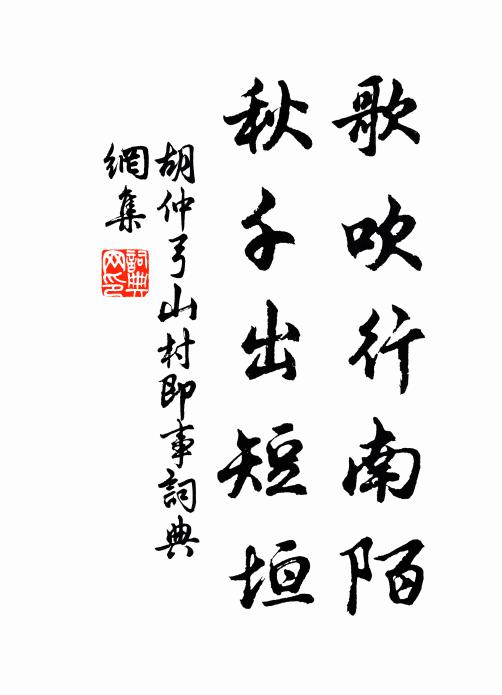 歌吹行南陌
秋千出短垣
胡仲弓山村即事詞典
網集
詞典网印